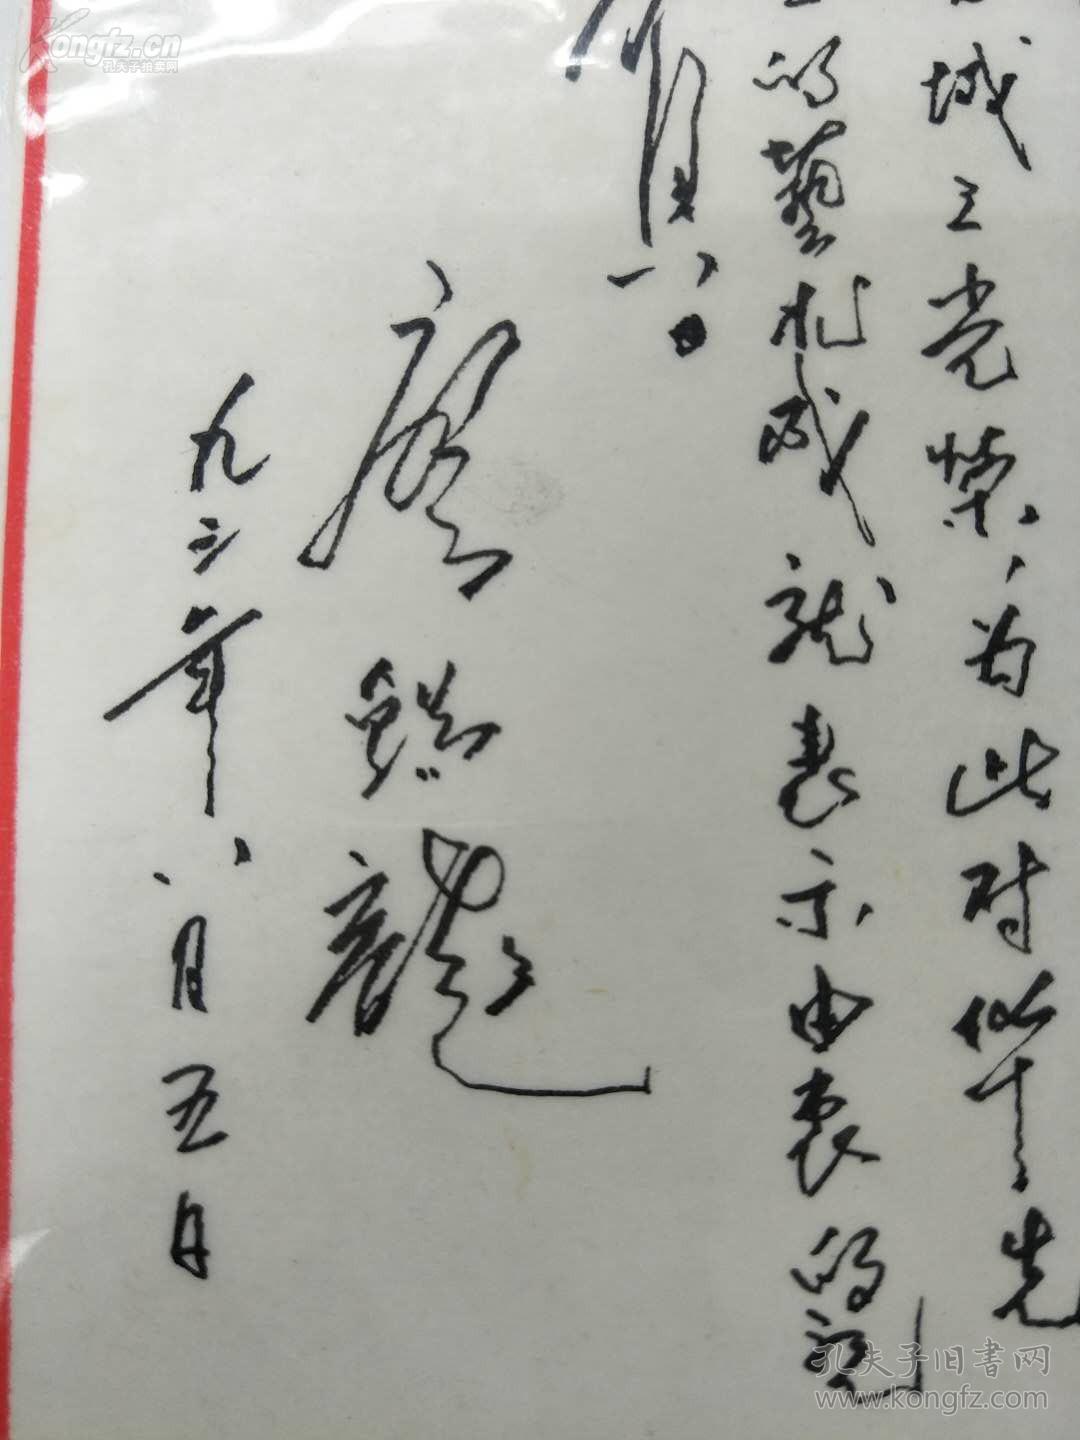 Kongfz.cn
孔夫子拍卖网
城之光荣,为此对毕先
的藝术成就表示由衷的祝
賀!
九三年八月五日
孔夫子旧书网
www.kongfz.com